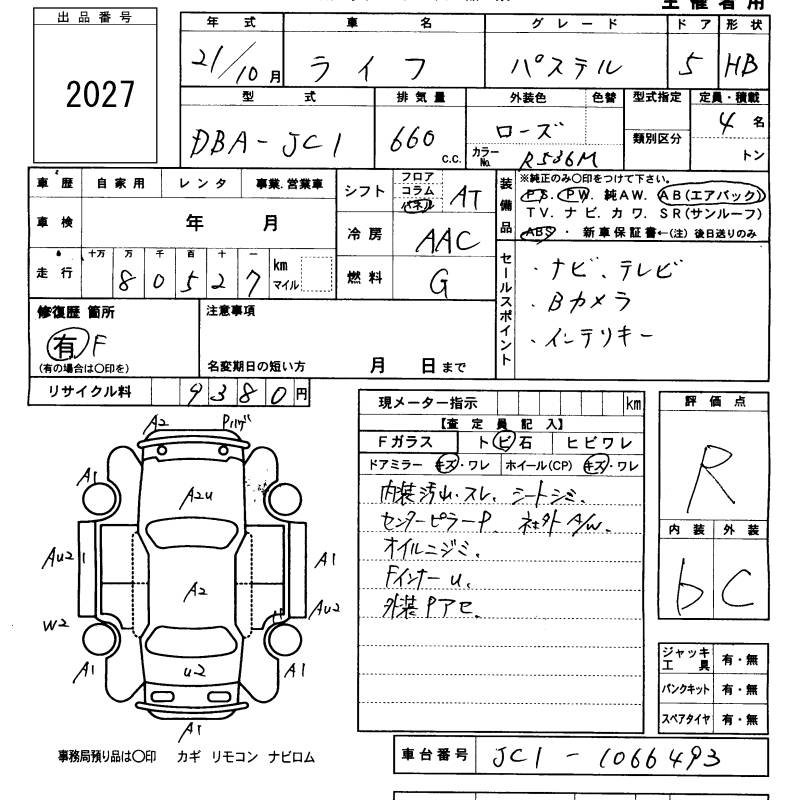 主催者用
出品番号
2027
年式 車名 グレード ドア 形状
21/10月 ライフ パステル 5 HB
型式 排気量 外装色 色替 型式指定 定員・積載
DBA-JC1 660 C.C. ローズ 類別区分 4名
カラーNo. R536M トン
車歴 自家用 レンタ 事業.営業車
車検 年 月
走行 十万 万 千 百 十 一
80527 km マイル
シフト フロア コラム パネル AT
冷房 AAC
燃料 G
装備品 ※純正のみ〇印をつけて下さい。
PS. PW. 純AW. AB(エアバック)
TV. ナビ. カワ. SR(サンルーフ)
ABS・ 新車保証書←(注)後日送りのみ
セールスポイント
・ナビ、テレビ
・Bカメラ
・インテリキー
修復歴 箇所
有 F
(有の場合は〇印を)
注意事項
名変期日の短い方 月 日まで
リサイクル料 9380円
現メーター指示 km
【査定員記入】
Fガラス トビ石 ヒビワレ
ドアミラー キズ・ワレ ホイール(CP) キズ・ワレ
内装汚れ・スレ、シートシミ、
センターピラーP、社外A/W、
オイルニジミ、
FインナーU、
外装Pアセ、
評価点
R
内装 外装
b C
A2 Pハゲ
A1 A2U
AU2 A1
A2 AU2
W2
A1 U2 A1
A1
ジャッキ工具 有・無
パンクキット 有・無
スペアタイヤ 有・無
事務局預り品は〇印 カギ リモコン ナビロム
車台番号 JC1-1066493